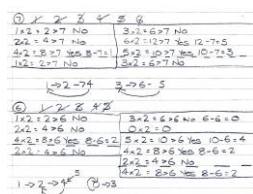 ⑦ 1 2 2 3 4 5 6
1×2 = 2>7 No 3×2=6>7 No
2×2 = 4>7 No 6×2=12>7 Yes 12-7=5
4×2=8>7 Yes 8-7=1 5×2=10>7 Yes 10-7=3
1×2= 2>7 No 3×2=6>7 No
1→2→4
⑥ 1 2 3 4 5
1×2 = 2>6 No 3×2=6>6 No 6-6=0
2×2 = 4>6 No 0×2=0
4×2=8>6 Yes 8-6=2 5×2=10>6 Yes 10-6=4
2×2=4>6 No 4×2=8>6 Yes 8-6=2
2×2=4>6 No
4×2=8>6 Yes 8-6=2
1→2→4